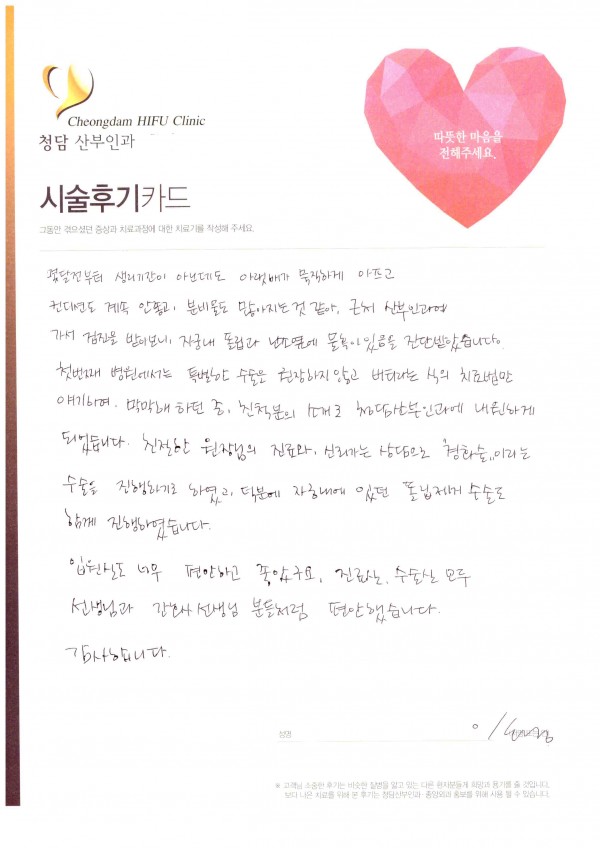 Cheongdam HIFU Clinic
청담 산부인과
따뜻한 마음을
전해주세요.
시술후기카드
그동안 겪으셨던 증상과 치료과정에 대한 치료기를 작성해 주세요.
몇달전부터 생리기간이 아닌데도 아랫배가 묵직하게 아프고
컨디션도 계속 안좋고, 분비물도 많아지는것 같아, 근처 산부인과에
가서 검진을 받아보니, 자궁내 폴립과 난소쪽에 물혹이 있음을 진단받았습니다.
첫번째 병원에서는 특별한 수술은 권장하지 않고 버티라는 식의 치료법만
얘기하여, 막막해 하던 중, 친척분의 소개로 청담산부인과에 내원하게
되었습니다. 친절한 원장님의 진료와, 신뢰가는 상담으로 "경화술"이라는
수술을 진행하기로 하였고, 덕분에 자궁내에 있던 폴립제거 수술도
함께 진행하였습니다.
입원실도 너무 편안하고 좋았구요, 진료실, 수술실 모두
선생님과 간호사 선생님 분들처럼 편안했습니다.
감사합니다.
성명
※ 고객님 소중한 후기는 비슷한 질병을 앓고 있는 다른 환자분들게 희망과 용기를 줄 것입니다.
보다 나은 치료를 위해 본 후기는 청담산부인과·종양외과 홍보를 위해 사용 될 수 있습니다.